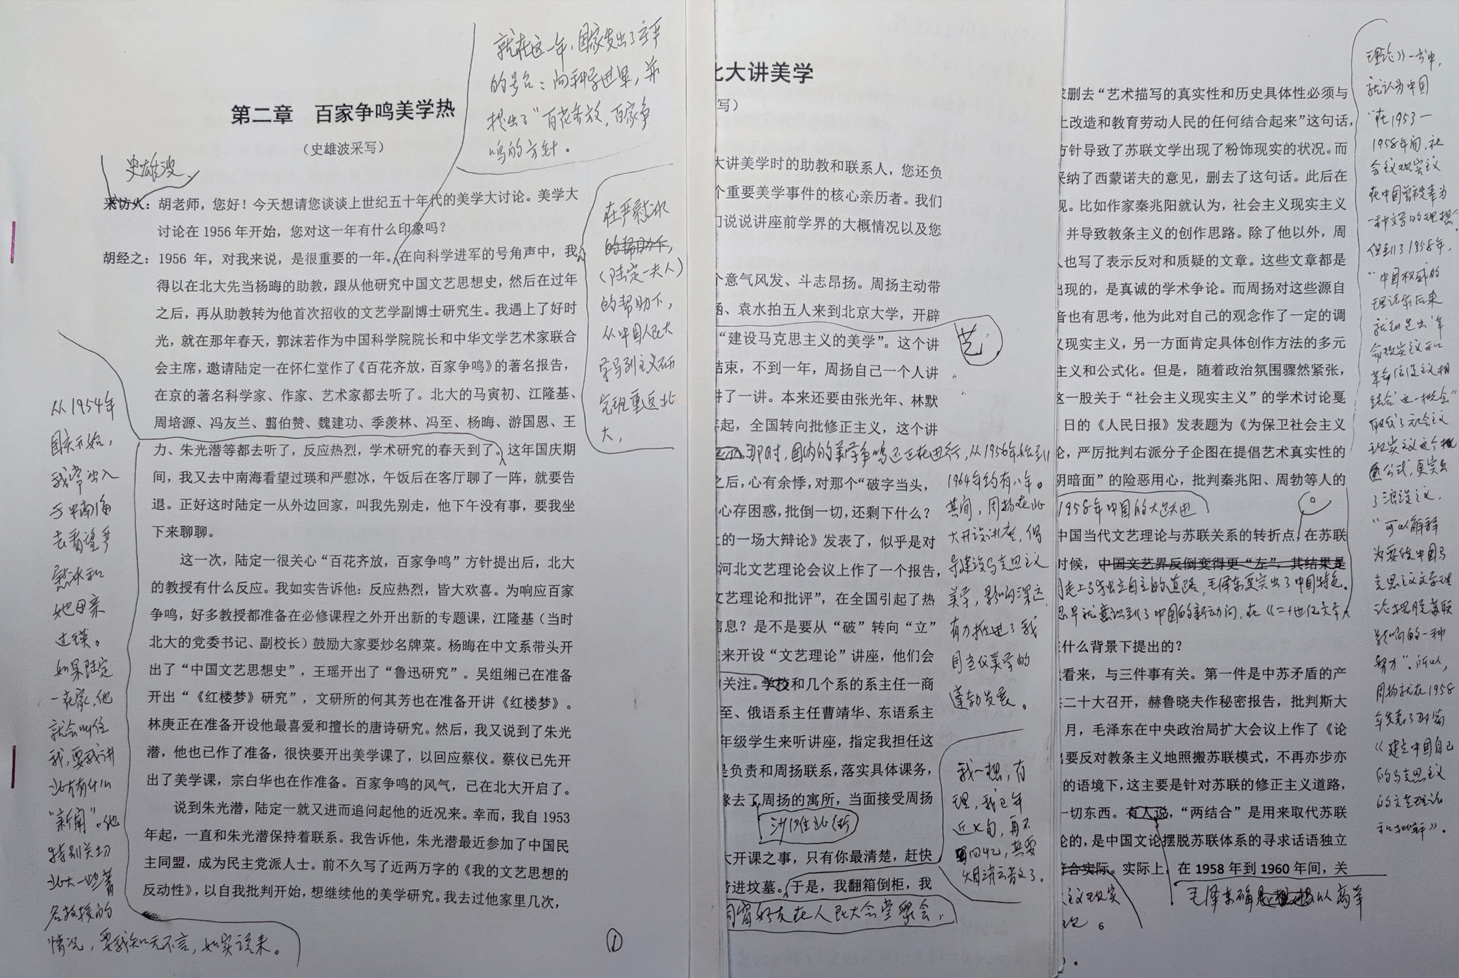 就在这一年，国家发出了
的号召：向科学进军，并
提出了“百花齐放，百家争
鸣的方针。
第二章　百家争鸣美学热
（史雄波采写）
史雄波
采访人：胡老师，您好！今天想请您谈谈上世纪五十年代的美学大讨论。美学大
讨论在 1956 年开始，您对这一年有什么印象吗？
胡经之：1956 年，对我来说，是很重要的一年。在向科学进军的号角声中，我
得以在北大先当杨晦的助教，跟从他研究中国文艺思想史，然后在过年
之后，再从助教转为他首次招收的文艺学副博士研究生。我遇上了好时
光，就在那年春天，郭沫若作为中国科学院院长和中华文学艺术家联合
会主席，邀请陆定一在怀仁堂作了《百花齐放，百家争鸣》的著名报告，
在京的著名科学家、作家、艺术家都去听了。北大的马寅初、江隆基、
周培源、冯友兰、翦伯赞、魏建功、季羡林、冯至、杨晦、游国恩、王
力、朱光潜等都去听了，反应热烈，学术研究的春天到了。这年国庆期
间，我又去中南海看望过瑛和严慰冰，午饭后在客厅聊了一阵，就要告
退。正好这时陆定一从外边回家，叫我先别走，他下午没有事，要我坐
下来聊聊。
这一次，陆定一很关心“百花齐放，百家争鸣”方针提出后，北大
的教授有什么反应。我如实告诉他：反应热烈，皆大欢喜。为响应百家
争鸣，好多教授都准备在必修课程之外开出新的专题课，江隆基（当时
北大的党委书记、副校长）鼓励大家要炒名牌菜。杨晦在中文系带头开
出了“中国文艺思想史”，王瑶开出了“鲁迅研究”。吴组缃已在准备
开出“《红楼梦》研究”，文研所的何其芳也在准备开讲《红楼梦》。
林庚正在准备开设他最喜爱和擅长的唐诗研究。然后，我又说到了朱光
潜，他也已作了准备，很快要开出美学课了，以回应蔡仪。蔡仪已先开
出了美学课，宗白华也在作准备。百家争鸣的风气，已在北大开启了。
说到朱光潜，陆定一就又进而追问起他的近况来。幸而，我自 1953
年起，一直和朱光潜保持着联系。我告诉他，朱光潜最近参加了中国民
主同盟，成为民主党派人士。前不久写了近两万字的《我的文艺思想的
反动性》，以自我批判开始，想继续他的美学研究。我去过他家里几次，
1
在严慰冰
（陆定一夫人）
的帮助下，
从中国人民大
学马列主义研
究班重返北
大，
从1954年
国庆开始，
我常出入
于中南海
去看望严
慰冰和
她母亲
过瑛。
如果陆定
一在家，他
就会叫住
我，要我讲
北大有什么
“新闻”。他
特别关切
北大一些著
名教授的
情况，要我知无不言，如实谈来。
北大讲美学
写）
大讲美学时的助教和联系人，您还负
个重要美学事件的核心亲历者。我们
们说说讲座前学界的大概情况以及您
个意气风发、斗志昂扬。周扬主动带
涵、袁水拍五人来到北京大学，开辟
“建设马克思主义的美学”。这个讲
艺
结束，不到一年，周扬自己一个人讲
讲了一讲。本来还要由张光年、林默
起，全国转向批修正主义，这个讲
那时，国内的美学争鸣还正在进行，从1956年始到
之后，心有余悸，对那个“破字当头，
心存困惑，批倒一切，还剩下什么？
上的一场大辩论》发表了，似乎是对
河北文艺理论会议上作了一个报告，
文艺理论和批评”，在全国引起了热
信息？是不是要从“破”转向“立”
来开设“文艺理论”讲座，他们会
关注。学校和几个系的系主任一商
至、俄语系主任曹靖华、东语系主
年级学生来听讲座，指定我担任这
是负责和周扬联系，落实具体课务，
缘去了周扬的寓所，当面接受周扬
沙滩北街
大开课之事，只有你最清楚，赶快
带进坟墓。于是，我翻箱倒柜，我
好友在人民大会堂聚会，
1964年约有八年。
其间，周扬在北
大开设讲座，倡
导建设马克思主义
美学，影响深远，
有力推进了我
国当代美学的
蓬勃发展。
我一想，有
理，我已年
近七旬，再不
回忆，真要
烟消云散了。
求删去“艺术描写的真实性和历史具体性必须与
上改造和教育劳动人民的任何结合起来”这句话，
方针导致了苏联文学出现了粉饰现实的状况。而
采纳了西蒙诺夫的意见，删去了这句话。此后在
现。比如作家秦兆阳就认为，社会主义现实主义
，并导致教条主义的创作思路。除了他以外，周
人也写了表示反对和质疑的文章。这些文章都是
出现的，是真诚的学术争论。而周扬对这些源自
音也有思考，他为此对自己的观念作了一定的调
义现实主义，另一方面肯定具体创作方法的多元
主义和公式化。但是，随着政治氛围骤然紧张，
这一股关于“社会主义现实主义”的学术讨论戛
日的《人民日报》发表题为《为保卫社会主义
论，严厉批判右派分子企图在提倡艺术真实性的
阴暗面”的险恶用心，批判秦兆阳、周勃等人的
1958年中国的大跃进
中国当代文艺理论与苏联关系的转折点，在苏联
时候，中国文艺界反倒变得更“左”，其结果是
走上了独立自主的道路，毛泽东更突出了中国特色。
早就意识到了中国的新动向，在《二十世纪文学
什么背景下提出的？
看来，与三件事有关。第一件是中苏矛盾的产
二十大召开，赫鲁晓夫作秘密报告，批判斯大
月，毛泽东在中央政治局扩大会议上作了《论
出要反对教条主义地照搬苏联模式，不再亦步亦
的语境下，这主要是针对苏联的修正主义道路，
一切东西。有人说，“两结合”是用来取代苏联
论的，是中国文论摆脱苏联体系的寻求话语独立
符合实际。实际上，在 1958 年到 1960 年间，关
6
理论》一书中，
就认为中国
“在1953—
1958年间，社
会主义现实主义
在中国曾被奉为
一种文学的理想”
但到了1958年，
“中国权威的
理论家后来
就如提出‘革
命现实主义和
革命浪漫主义相
结合’这一概念”
取代了社会主义
现实主义这个
公式，更突出
了浪漫主义，
“可以解释
为要使中国马
克思主义文学理
论摆脱苏联
影响的一种
努力”。所以，
周扬就在1958
年发表了那篇
《建立中国自己
的马克思主义
的文艺理论
和批评》。